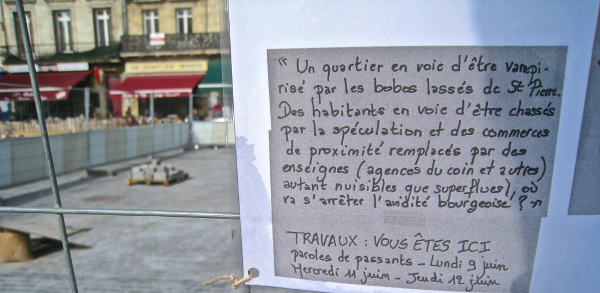 " Un quartier en voie d'être vampi-
risé par les bobos lassés de St Pierre.
Des habitants en voie d'être chassés
par la spéculation et des commerces
de proximité remplacés par des
enseignes (agences du coin et autres)
autant nuisibles que superflues!, où
va s'arrêter l'avidité bourgeoise ? "
TRAVAUX : VOUS ÊTES ICI
paroles de passants - Lundi 9 juin
Mercredi 11 juin - Jeudi 12 juin